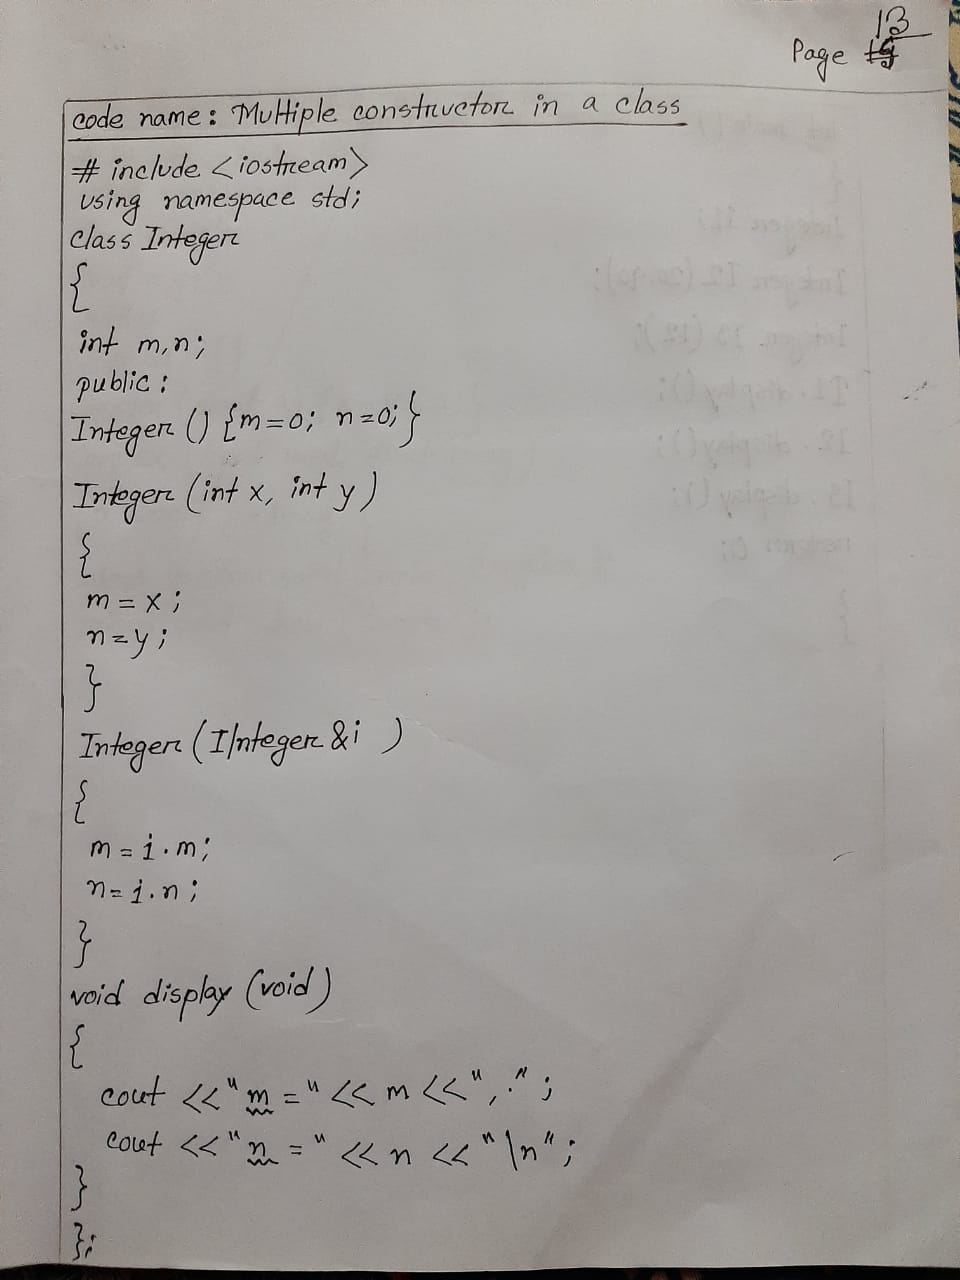 13
Page
code name: Multiple constructor in a class
# include <iostream>
using namespace std;
class Integer
{
int m,n;
public:
Integer () {m=0; n=0;}
Integer (int x, int y)
{
m = x;
n=y;
}
Integer (I/nteger &i )
{
m = i.m;
n= i.n;
}
void display (void)
{
cout <<"m =" << m <<", ." ;
cout <<"n =" << n << "\n" ;
}
};